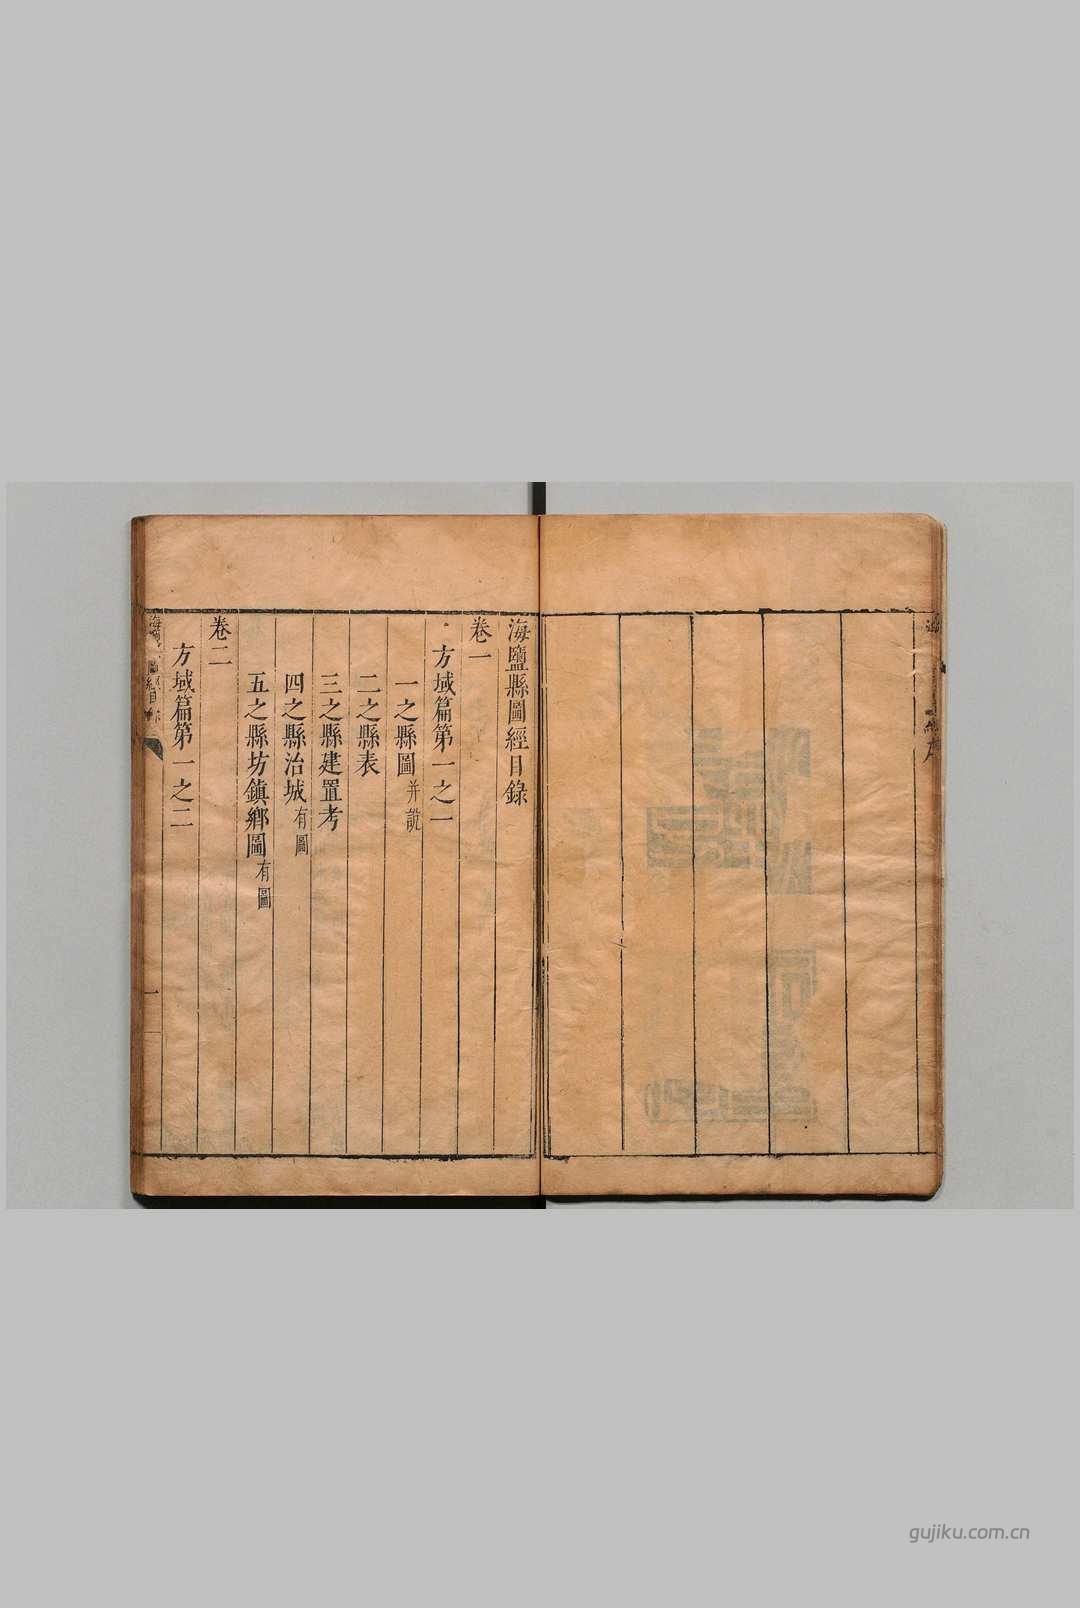 海鹽縣圖經目錄
卷一
方域篇第一之一
一之縣圖并說
二之縣表
三之縣建置考
四之縣治城有圖
五之縣坊鎮鄉圖有圖
卷二
方域篇第一之二
一
gujiku.com.cn